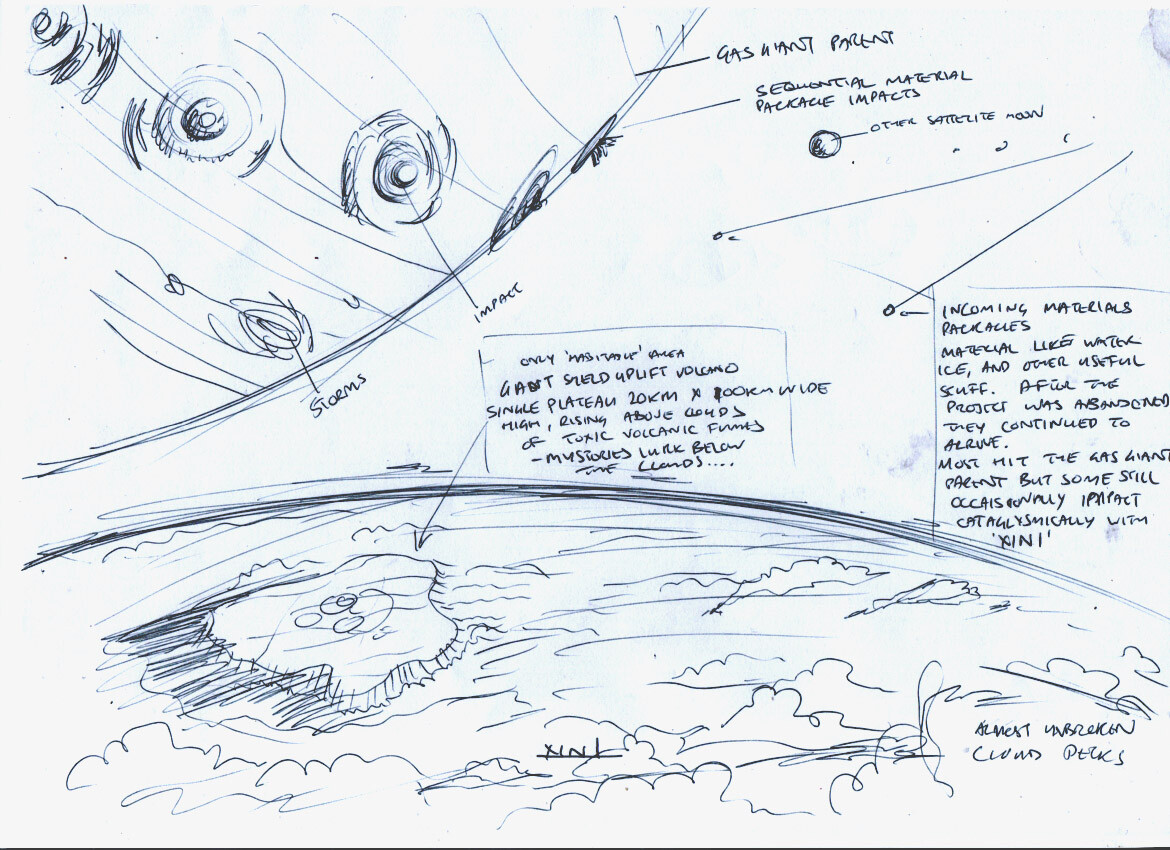 GAS GIANT PARENT
SEQUENTIAL MATERIAL
PACKAGE IMPACTS
OTHER SATTELITE MOON
IMPACT
STORMS
ONLY 'HABITABLE' AREA
GIANT SHIELD UPLIFT VOLCANO
SINGLE PLATEAU 20KM X 100KM WIDE
HIGH, RISING ABOVE CLOUDS
OF TOXIC VOLCANIC FUMES
- MYSTORIES LURK BELOW
THE CLOUDS....
INCOMING MATERIALS
PACKAGES
MATERIAL LIKE WATER
ICE, AND OTHER USEFUL
STUFF. AFTER THE
PROJECT WAS ABANDONED
THEY CONTINUED TO
ARRIVE.
MOST HIT THE GAS GIANT
PARENT BUT SOME STILL
OCCAISIONALLY IMPACT
CATACLYSMICALLY WITH
'XINI'
XINI
ALMOST UNBROKEN
CLOUD DECKS